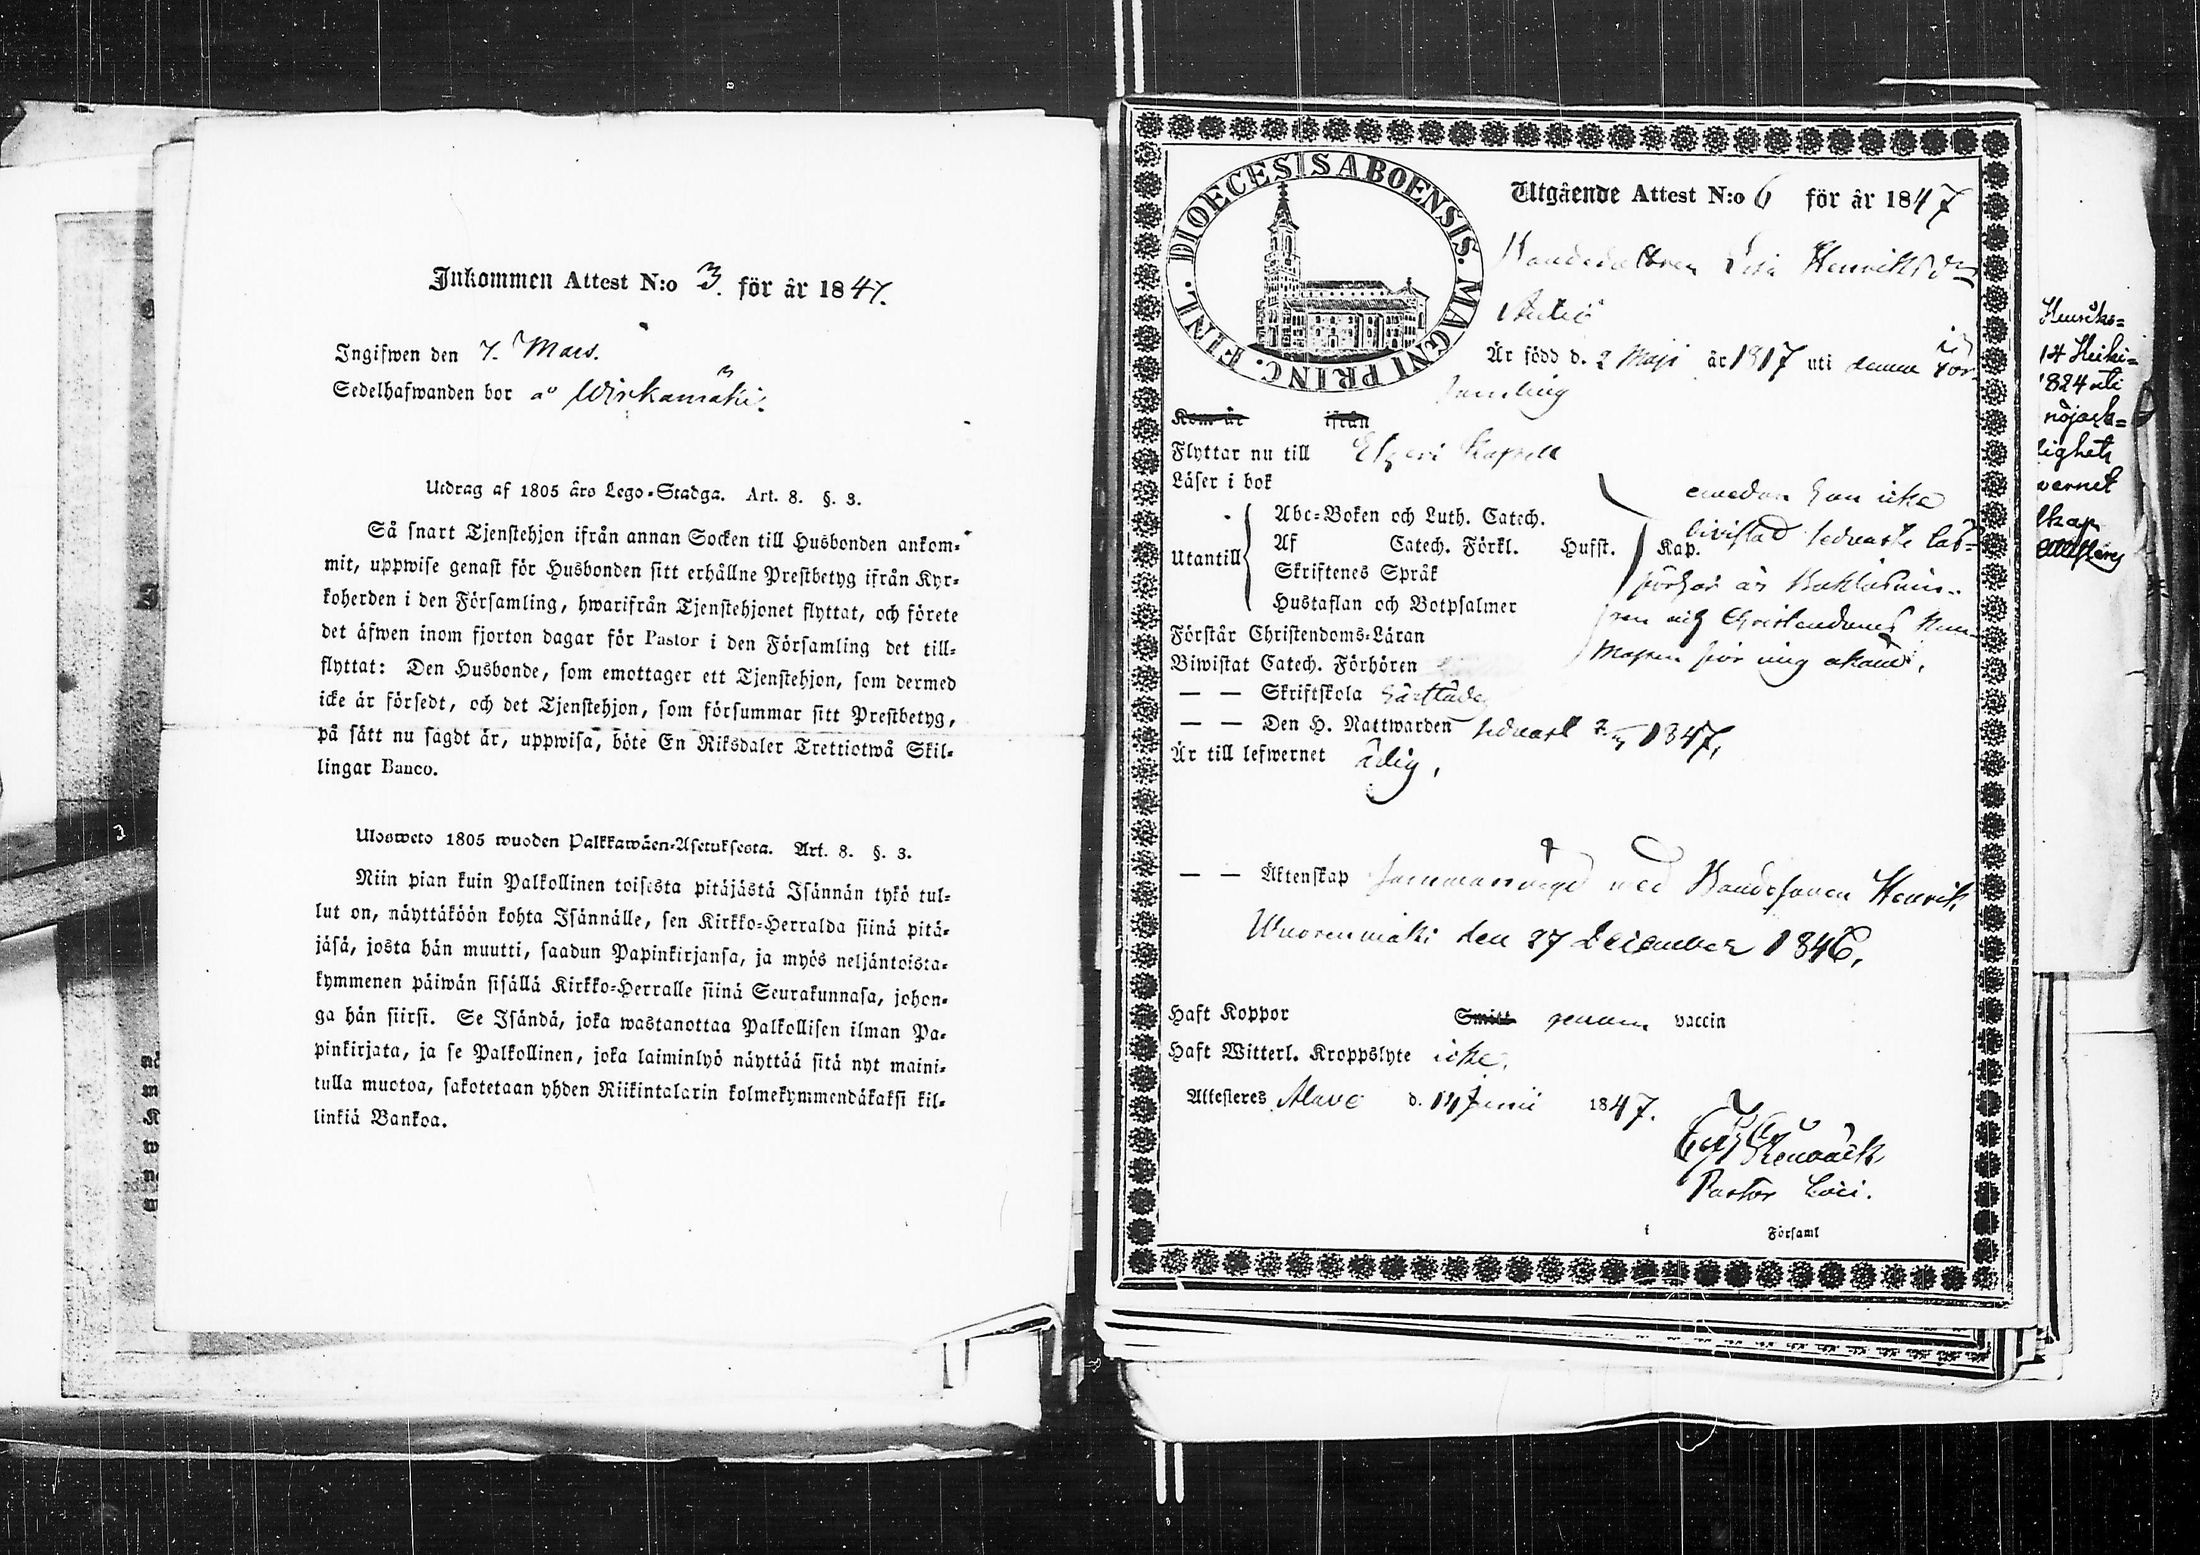 Inkommen Attest N:o 3. för år 1847.
Ingifwen den 7. Mars.
Sedelhafwanden bor å Wirkamäki.
Utdrag af 1805 års Lego-Stadga. Art. 8. §. 3.
Så snart Tjenstehjon ifrån annan Socken till Husbonden ankom-
mit, uppwise genast för Husbonden sitt erhållne Prestbetyg ifrån Kyr-
koherden i den Församling, hwarifrån Tjenstehjonet flyttat, och förete
det äfwen inom fjorton dagar för Pastor i den Församling det till-
flyttat: Den Husbonde, som emottager ett Tjenstehjon, som dermed
icke är försedt, och det Tjenstehjon, som försummar sitt Prestbetyg,
på sätt nu sagdt är, uppwisa, böte En Riksdaler Trettiotwå Skil-
lingar Banco.
Ulosweto 1805 wuoden Palkkawäen-Asetuksesta. Art. 8. §. 3.
Niin pian kuin Palkollinen toisesta pitäjästä Isännän tykö tul-
lut on, näyttäköön kohta Isännälle, sen Kirkko-Herralda siinä pitä-
jäsä, josta hän muutti, saadun Papinkirjansa, ja myös neljäntoista-
kymmenen päiwän sisällä Kirkko-Herralle siinä Seurakunnasa, johon-
ga hän siirsi. Se Isändä, joka wastanottaa Palkollisen ilman Pa-
pinkirjata, ja se Palkollinen, joka laiminlyö näyttää sitä nyt maini-
tulla muotoa, sakotetaan yhden Riikintalarin kolmekymmendäkaksi kil-
linkiä Bankoa.
DIOECESIS ABOENSIS. MAGNI PRINC. FINL.
Utgående Attest N:o 6 för år 1847
Bondedottren Lisa Henriksdr
Är född d. 2 Maji år 1817 uti denna För-
samling
Kom år ifrån
Flyttar nu till Etseri Kapell
Läser i bok
Utantill
Abc-Boken och Luth. Catech.
Af Catech. Förkl. Husst. Kap.
Skriftenes Språk
Hustaflan och Botpsalmer
emedan hon icke
bivistad sednaste Läs-
förhör är
Christendoms
för mig okänd.
Förstår Christendoms-Läran
Biwistat Catech. Förhören
— — Skriftskola
— — Den H. Nattwarden sednast 1847,
Är till lefwernet ärlig,
— — Äktenskap sammanvigd med Bondesonen Henrik
Wuorenmäki den 27 December 1846,
Haft Koppor Smitt genom vaccin
Haft Witterl. Kroppslyte icke.
Attesteres Alavo d. 14 Junii 1847.
Pastor Loci.
i Församl
Henriks-
14 Heiki-
1824 uti
nöjack-
lighets
vernet
skap